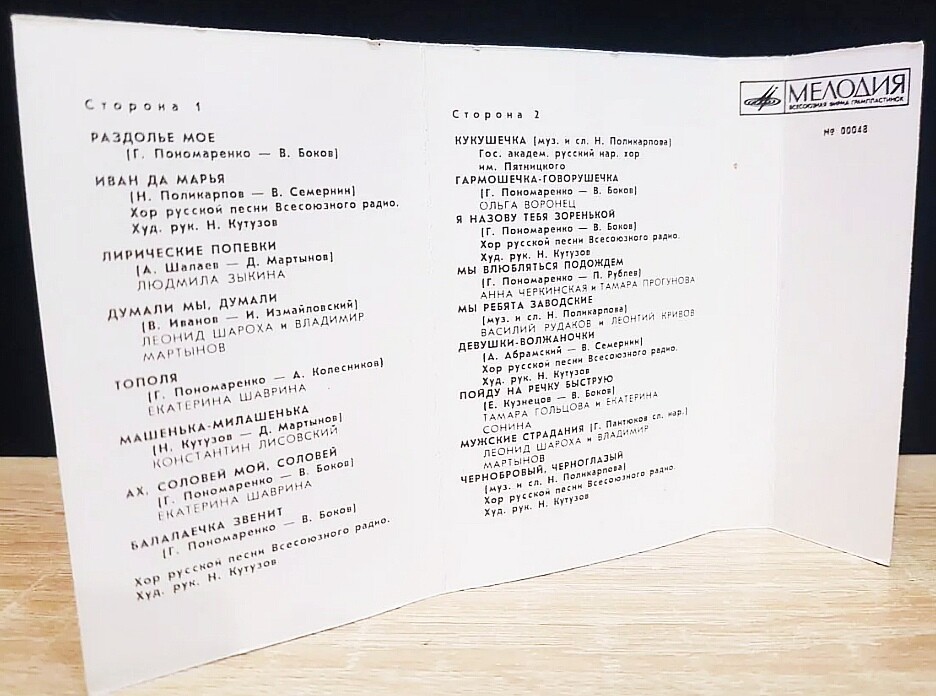 Сторона 1
РАЗДОЛЬЕ МОЕ
(Г. Пономаренко — В. Боков)
ИВАН ДА МАРЬЯ
(Н. Поликарпов — В. Семернин)
Хор русской песни Всесоюзного радио.
Худ. рук. Н. Кутузов
ЛИРИЧЕСКИЕ ПОПЕВКИ
(А. Шалаев — Д. Мартынов)
ЛЮДМИЛА ЗЫКИНА
ДУМАЛИ МЫ, ДУМАЛИ
(В. Иванов — И. Измайловский)
ЛЕОНИД ШАРОХА и ВЛАДИМИР
МАРТЫНОВ
ТОПОЛЯ
(Г. Пономаренко — А. Колесников)
ЕКАТЕРИНА ШАВРИНА
МАШЕНЬКА-МИЛАШЕНЬКА
(Н. Кутузов — Д. Мартынов)
КОНСТАНТИН ЛИСОВСКИЙ
АХ, СОЛОВЕЙ МОЙ, СОЛОВЕЙ
(Г. Пономаренко — В. Боков)
ЕКАТЕРИНА ШАВРИНА
БАЛАЛАЕЧКА ЗВЕНИТ
(Г. Пономаренко — В. Боков)
Хор русской песни Всесоюзного радио.
Худ. рук. Н. Кутузов
Сторона 2
КУКУШЕЧКА (муз. и сл. Н. Поликарпова)
Гос. академ. русский нар. хор
им. Пятницкого
ГАРМОШЕЧКА-ГОВОРУШЕЧКА
(Г. Пономаренко — В. Боков)
ОЛЬГА ВОРОНЕЦ
Я НАЗОВУ ТЕБЯ ЗОРЕНЬКОЙ
(Г. Пономаренко — В. Боков)
Хор русской песни Всесоюзного радио.
Худ. рук. Н. Кутузов
МЫ ВЛЮБЛЯТЬСЯ ПОДОЖДЕМ
(Г. Пономаренко — П. Рублев)
АННА ЧЕРКИНСКАЯ и ТАМАРА ПРОГУНОВА
МЫ РЕБЯТА ЗАВОДСКИЕ
(муз. и сл. Н. Поликарпова)
ВАСИЛИЙ РУДАКОВ и ЛЕОНТИЙ КРИВОВ
ДЕВУШКИ-ВОЛЖАНОЧКИ
(А. Абрамский — В. Семернин)
Хор русской песни Всесоюзного радио.
Худ. рук. Н. Кутузов
ПОЙДУ НА РЕЧКУ БЫСТРУЮ
(Е. Кузнецов — В. Боков)
ТАМАРА ГОЛЬЦОВА и ЕКАТЕРИНА
СОНИНА
МУЖСКИЕ СТРАДАНИЯ (Г. Пантюков сл. нар.)
ЛЕОНИД ШАРОХА и ВЛАДИМИР
МАРТЫНОВ
ЧЕРНОБРОВЫЙ, ЧЕРНОГЛАЗЫЙ
(муз. и сл. Н. Поликарпова)
Хор русской песни Всесоюзного радио.
Худ. рук. Н. Кутузов
МЕЛОДИЯ
ВСЕСОЮЗНАЯ ФИРМА ГРАМПЛАСТИНОК
№ 00048